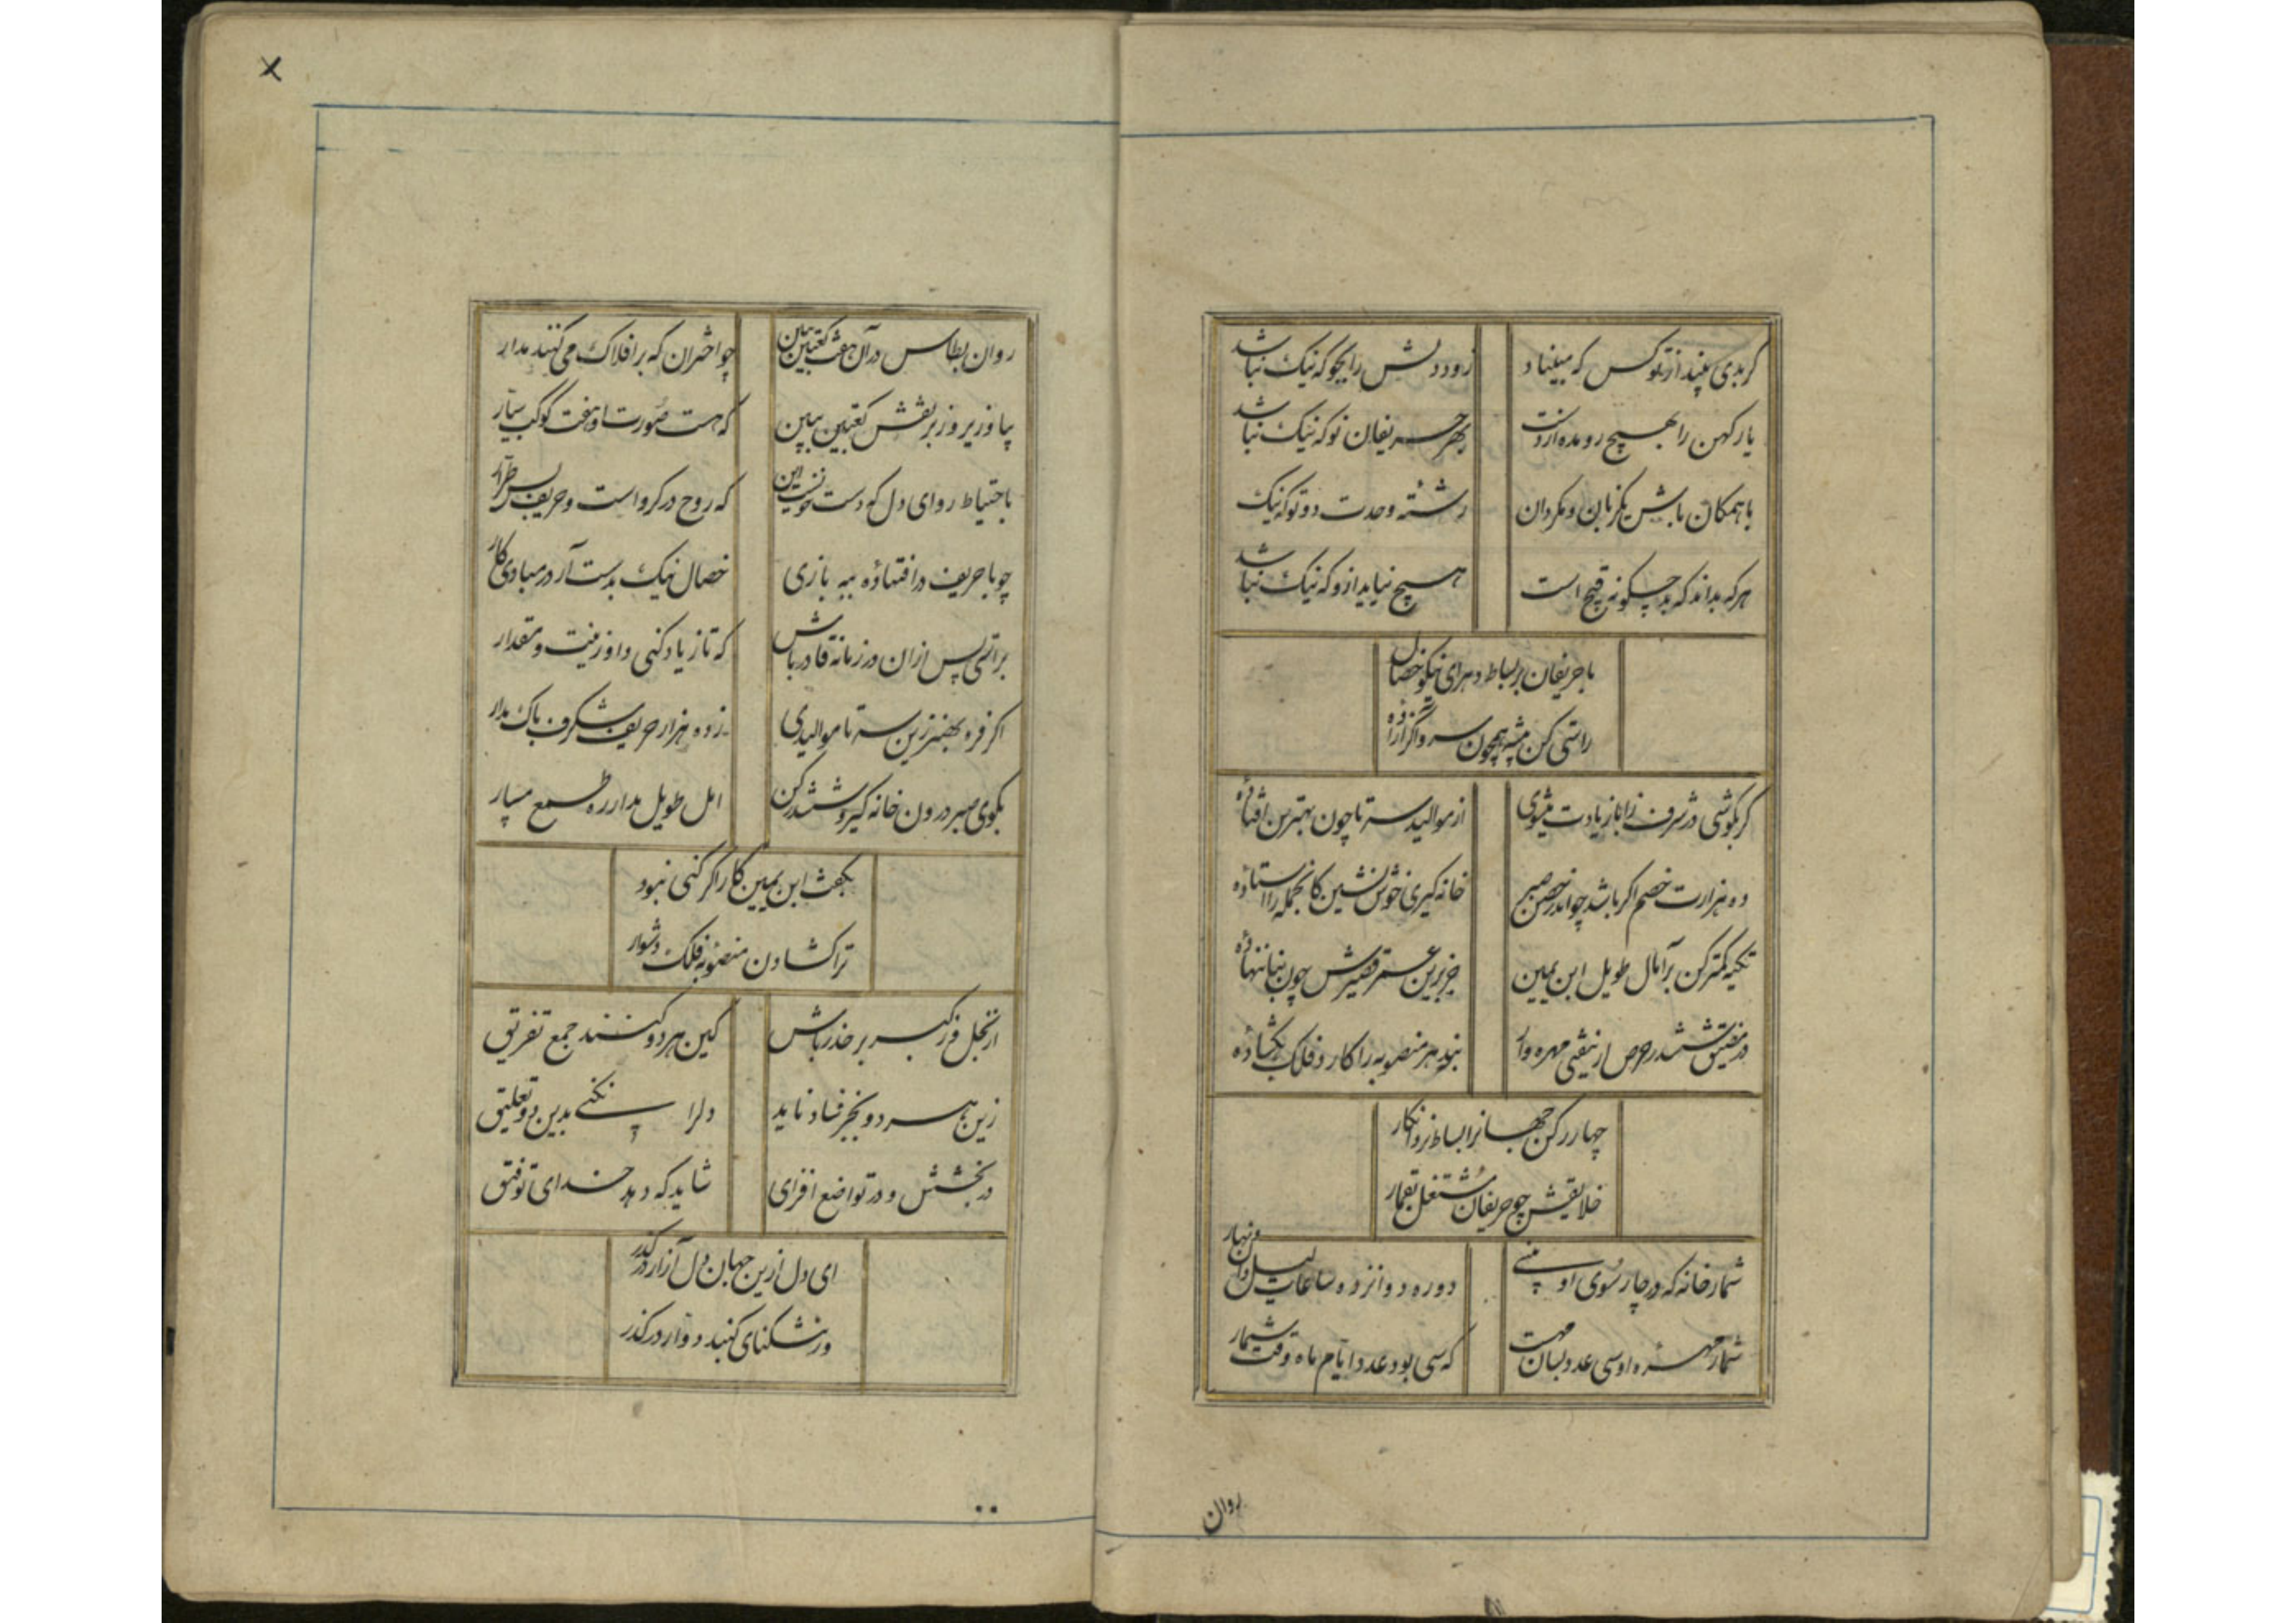 گر بدی بیند از تو کس که مبیناد
زود دلش را بجو که نیک نباشد
یار کهن را بهیچ رو مده از دست
بهر حریفان نو که نیک نباشد
با همکان باش یکزبان و مکردان
رشته وحدت دو تو که نیک
هر که بداند که بد چکونه قبیح است
هیچ نیاید ازو که نیک نباشد
با حریفان بر بساط دهر ای نیکو خصال
راستی کن پیشه همچون سرو اگر آزاده
گر بکوشی در شرف زانها زیادت میشوی
از موالید سه تا چون بهترین افتاده
ده هزارت خصم اگر باشد چو اندر حصن صبر
خانه گیری خوش نشین کانجمله را استاده
تکیه کمتر کن بر آمال طویل ابن یمین
جز برین عمر قصیرش چون بنا ننهاده
در مضیق ششدر حرص ار نیفتی مهره وار
نبود هر منصوبه را کار د فلک بکشاده
چهار رکن جهانرا بساط نرد انکار
خلایقش چو حریفان مشتغل بقمار
شمار خانه که در چار سوی او بینی
دوره دوانزده ساعات لیل وان نهار
شمار مهره او سی عدد بسان مهست
که سی بود عدد ایام ماه وقت شمار
روان
روان بطاس در آن هفت کعبتین ببین
چو اختران که بر افلاک می کنند مدار
بیا و زیر و زبر نقش کعبتین ببین
که هست صورت او هفت کوکب سیار
باحتیاط رو ای دل که دست خونست این
که روح در کرو است و حریف بس طرار
چو با حریف در افتاده به بازی
خصال نیک بدست آر در مبادی کار
براتی پس ازان در زمانه قادر باش
که تا زیاد کنی داو زینت و مقدار
اگر فره بهنر زین سه تا موالیدی
ز ده هزار حریف شکرف باک مدار
بکوی صبر درون خانه گیر و ششدر کن
امل طویل مدار ره طمع مسپار
بکفت ابن یمین کار اگر کنی نبود
ترا کشادن منصوبه فلک دشوار
از بخل و ز کبر بر حذر باش
کین هر دو کنند جمع تفریق
زین هر دو بجز فساد ناید
دلرا نکنی بدین دو تعلیق
در بخشش و در تواضع افزای
شاید که دهد خدای توفیق
ای دل ازین جهان دل آزار در گذر
وز تنکنای کنبد دوار در گذر